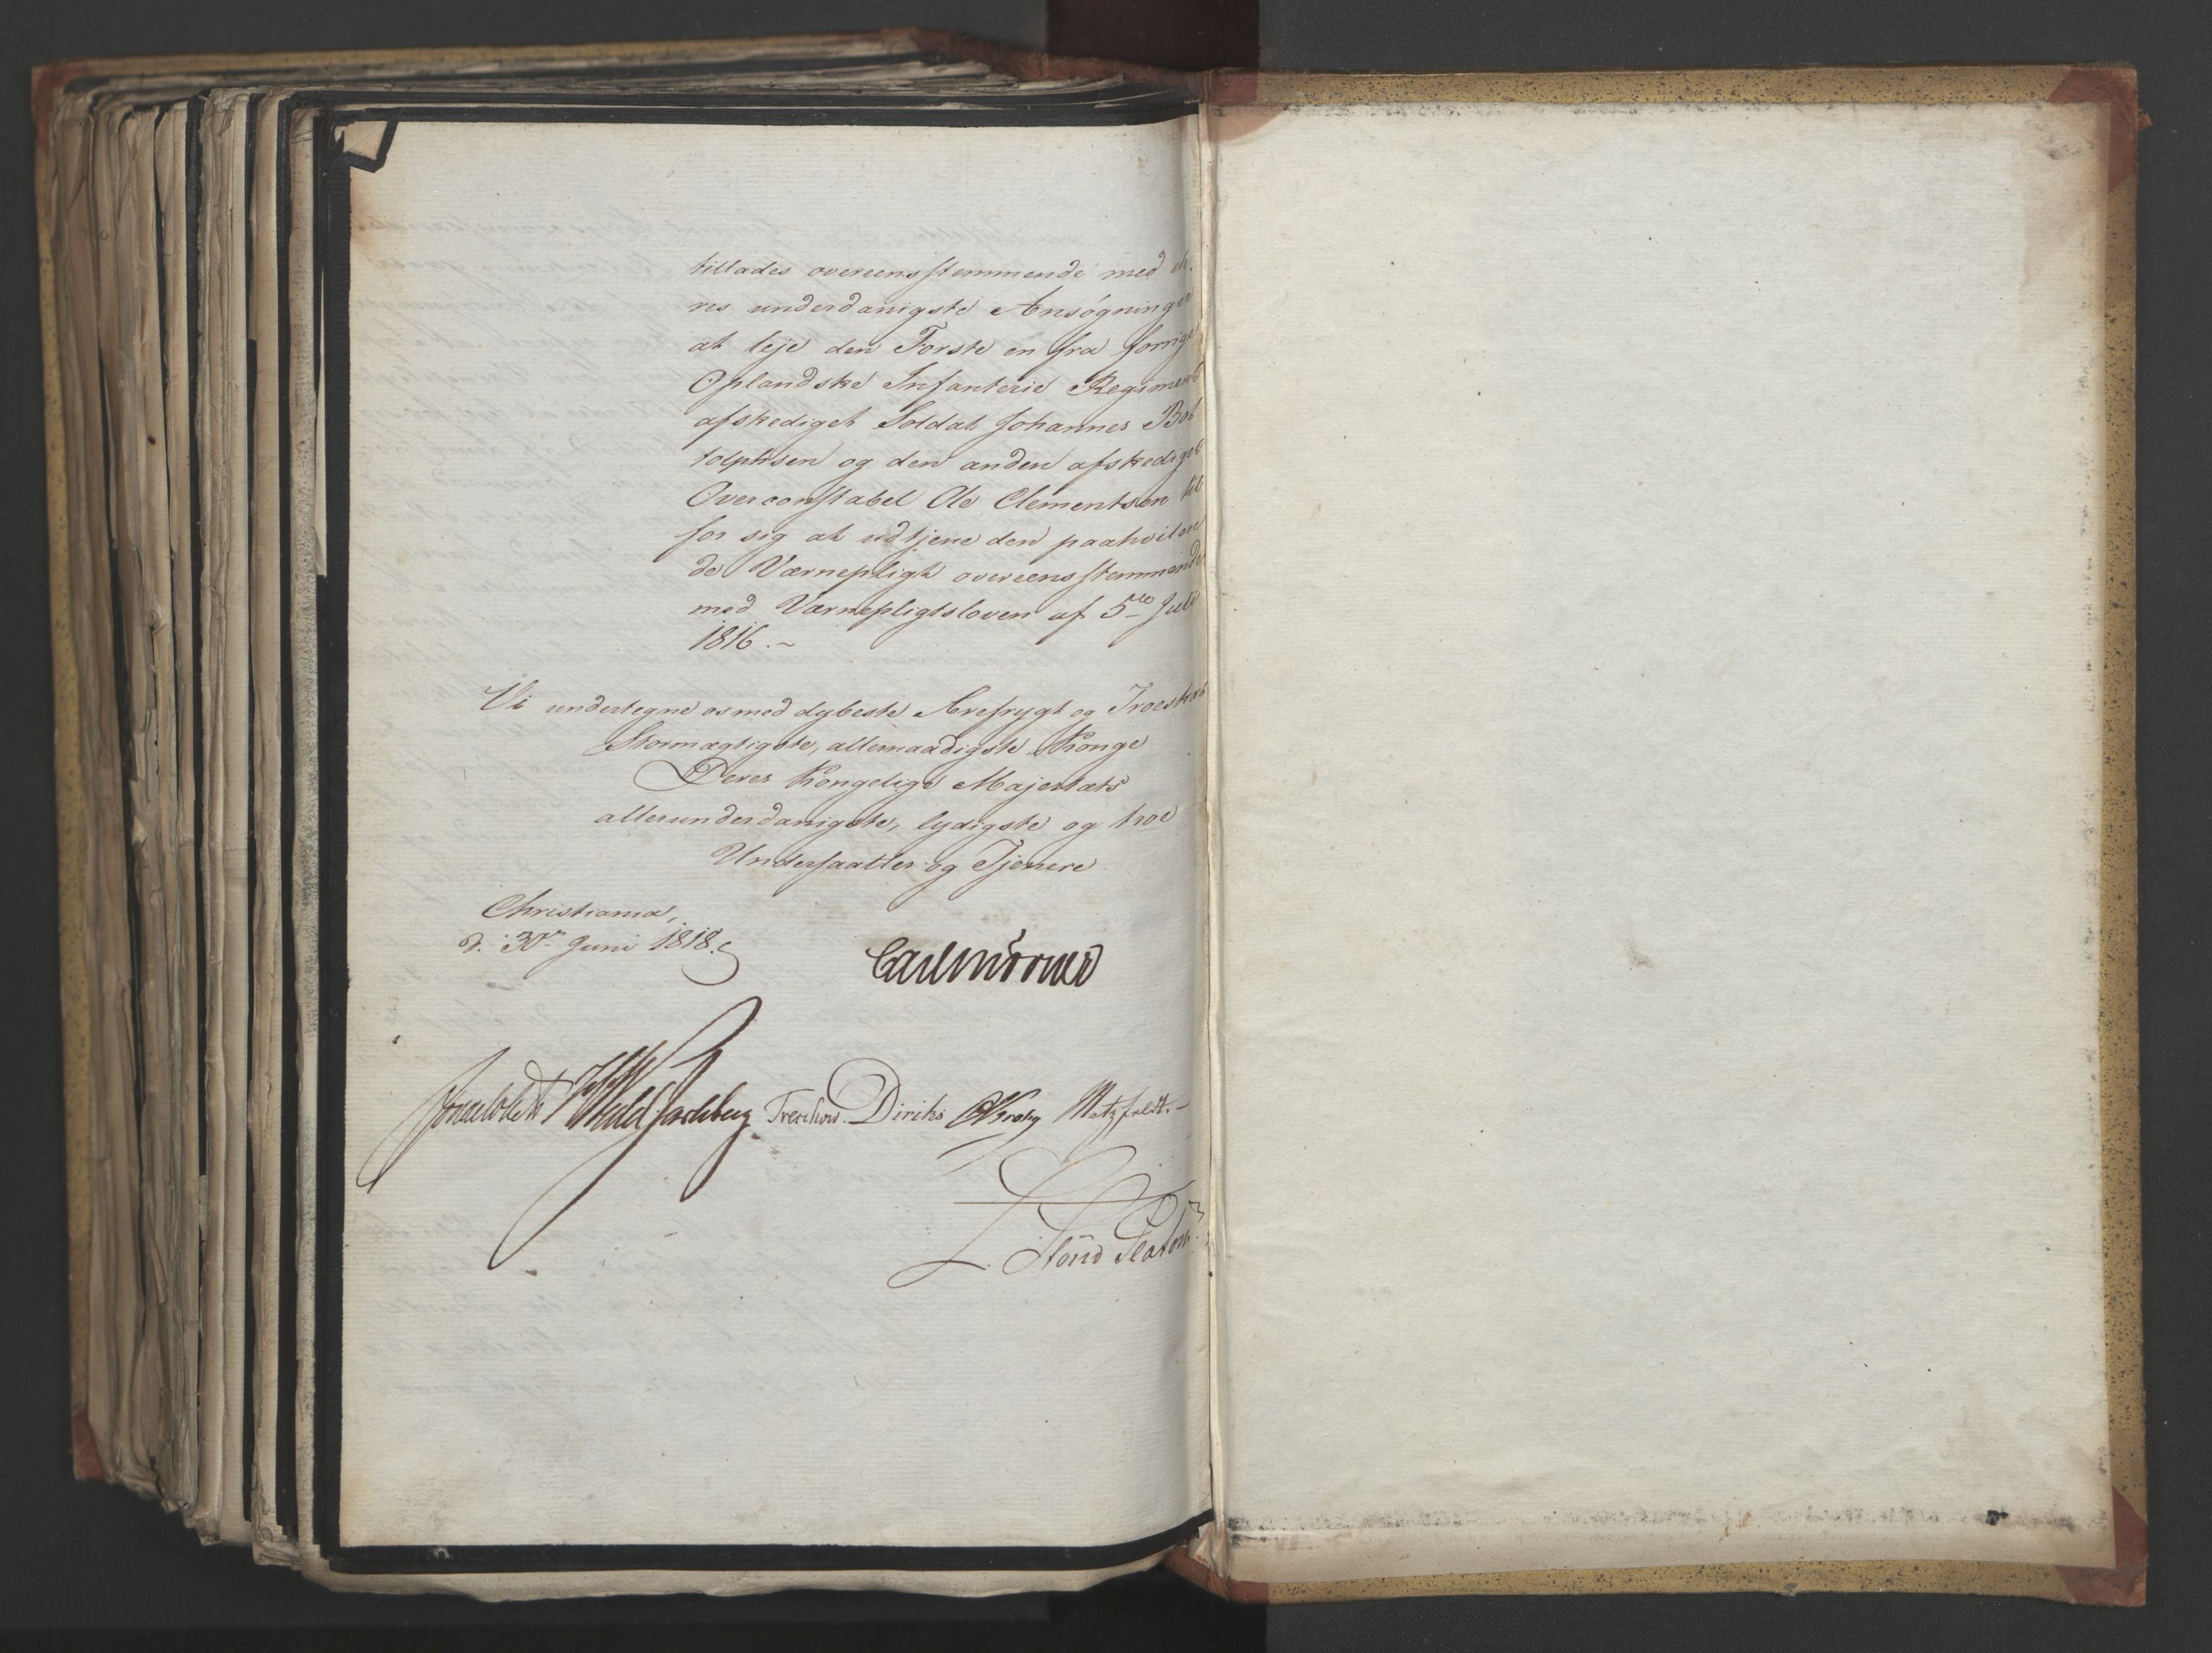 tillades overeensstemmende med de-
res underdanigste Ansøgninger
at leje den Første en fra forrige
Oplandske Infanterie Regiment
afskediget Soldat Johannes Bot
tolphsen og den anden afskediget
Overconstabel Ole Clementsen til
for sig at udtjene den paahvilen
de Værnepligt overeensstemmende
med Værnepligtsloven af 5te Juli
1816.~
Vi undertegne os med dybeste Ærefrygt og Troeskab
Stormægtigste, allernaadigste Konge
Deres Kongelige Majestæts
allerunderdanigste, lydigste og troe
Undersaatter og Tjenere
Christiania,
d. 30te Juni 1818.
Carl Mörner
Wedel Jarlsberg Treschow. Diriks Krohg Motzfeldt.
L. Stoud Platou